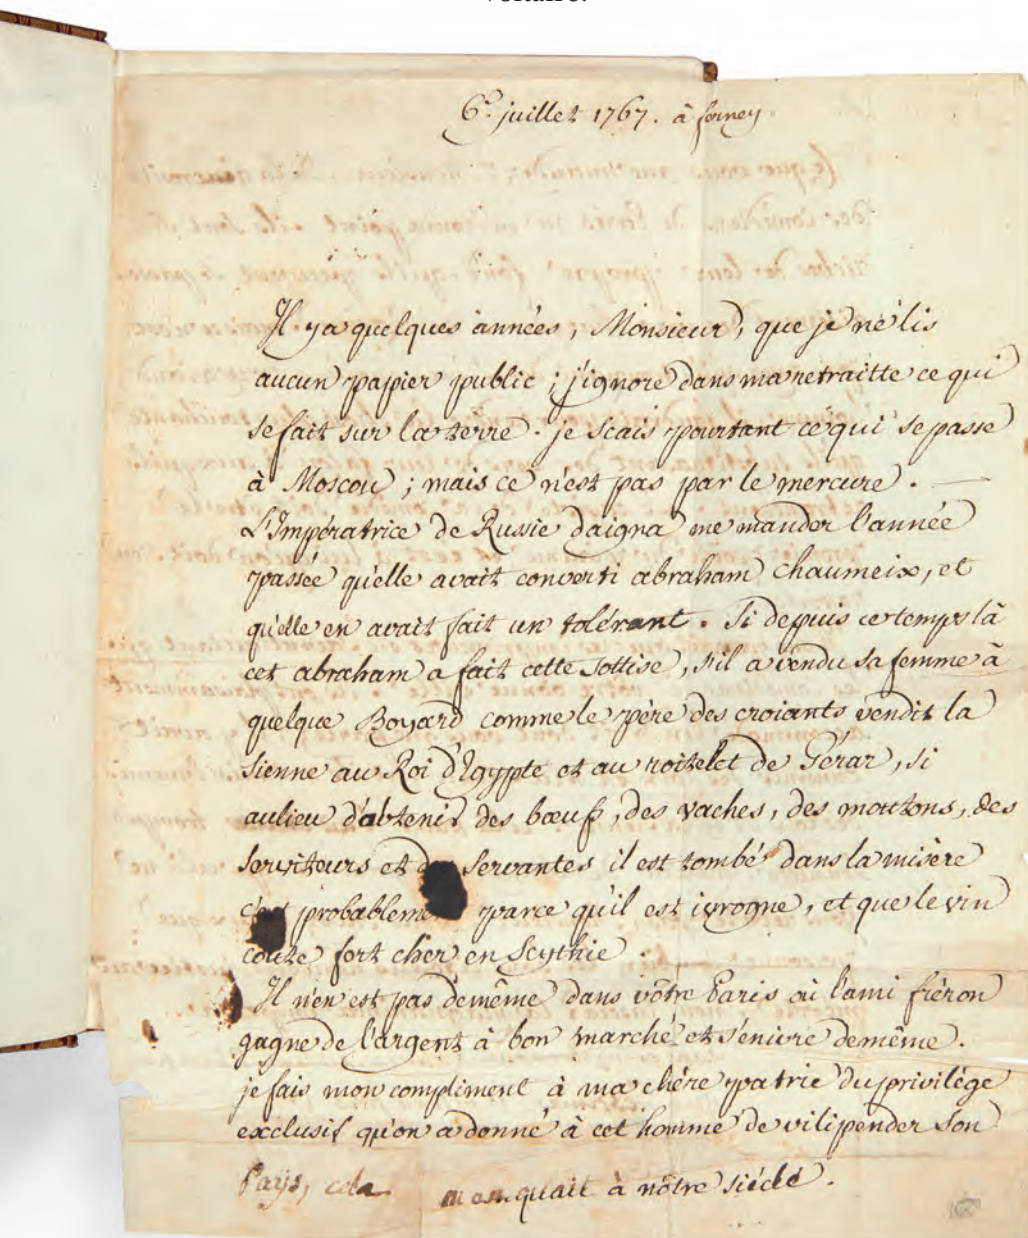 Voltaire.
6e. juillet 1767. à ferney
Il ya quelques années, Monsieur, que je ne lis
aucun papier public ; j'ignore dans ma retraitte ce qui
se fait sur la terre. je scais pourtant ce qui se passe
à Moscou ; mais ce n'est pas par le mercure. —
L'Impératrice de Russie daigna me mander l'année
passée qu'elle avait converti abraham chaumeix, et
qu'elle en avait fait un tolérant. Si depuis ce temps là
cet abraham a fait cette sottise, s'il a vendu sa femme à
quelque Boyard comme le père des croiants vendit la
sienne au Roi d'Egypte et au roitelet de Gérar, si
aulieu d'obtenir des bœufs, des vaches, des moutons, des
serviteurs et des servantes il est tombé dans la misère
c'est probablement parce qu'il est ivrogne, et que le vin
coute fort cher en Scythie.
Il n'en est pas de même dans vôtre Paris où l'ami fréron
gagne de l'argent à bon marché et s'enivre de même.
je fais mon compliment à ma chére patrie du privilège
exclusif qu'on a donné à cet homme de vilipender son
Pays, cela manquait à nôtre siécle.